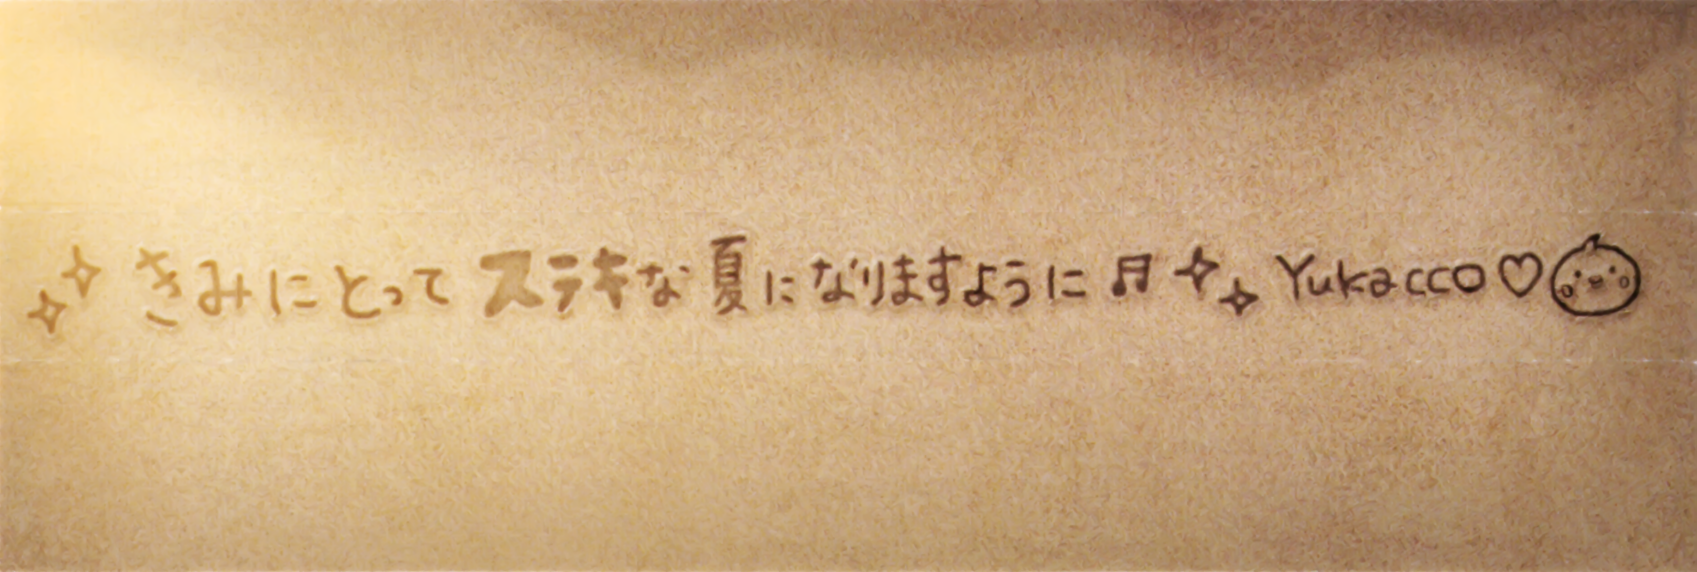 きみにとってステキな夏になりますように♬ Yukacco♡